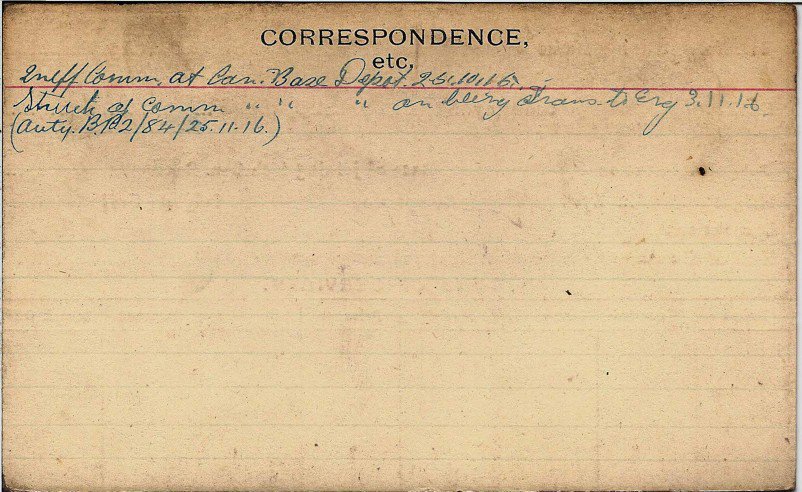 CORRESPONDENCE,
etc,
Ineff Comm. at Can. Base Depot. 25.10.16.
Struck of Comm " " " on being Trans. to Eng 3.11.16
(auty. B.P.2/84/25.11.16.)